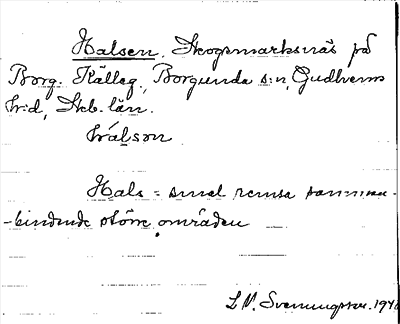 Halsen. Skogsmarksnäs på
Borg. Källeg., Borgunda s:n, Gudhems
h:d, Skb. län.
hálsen
Hals = smal remsa samman-
-bindande större områden
L. V. Svenungsson. 1940